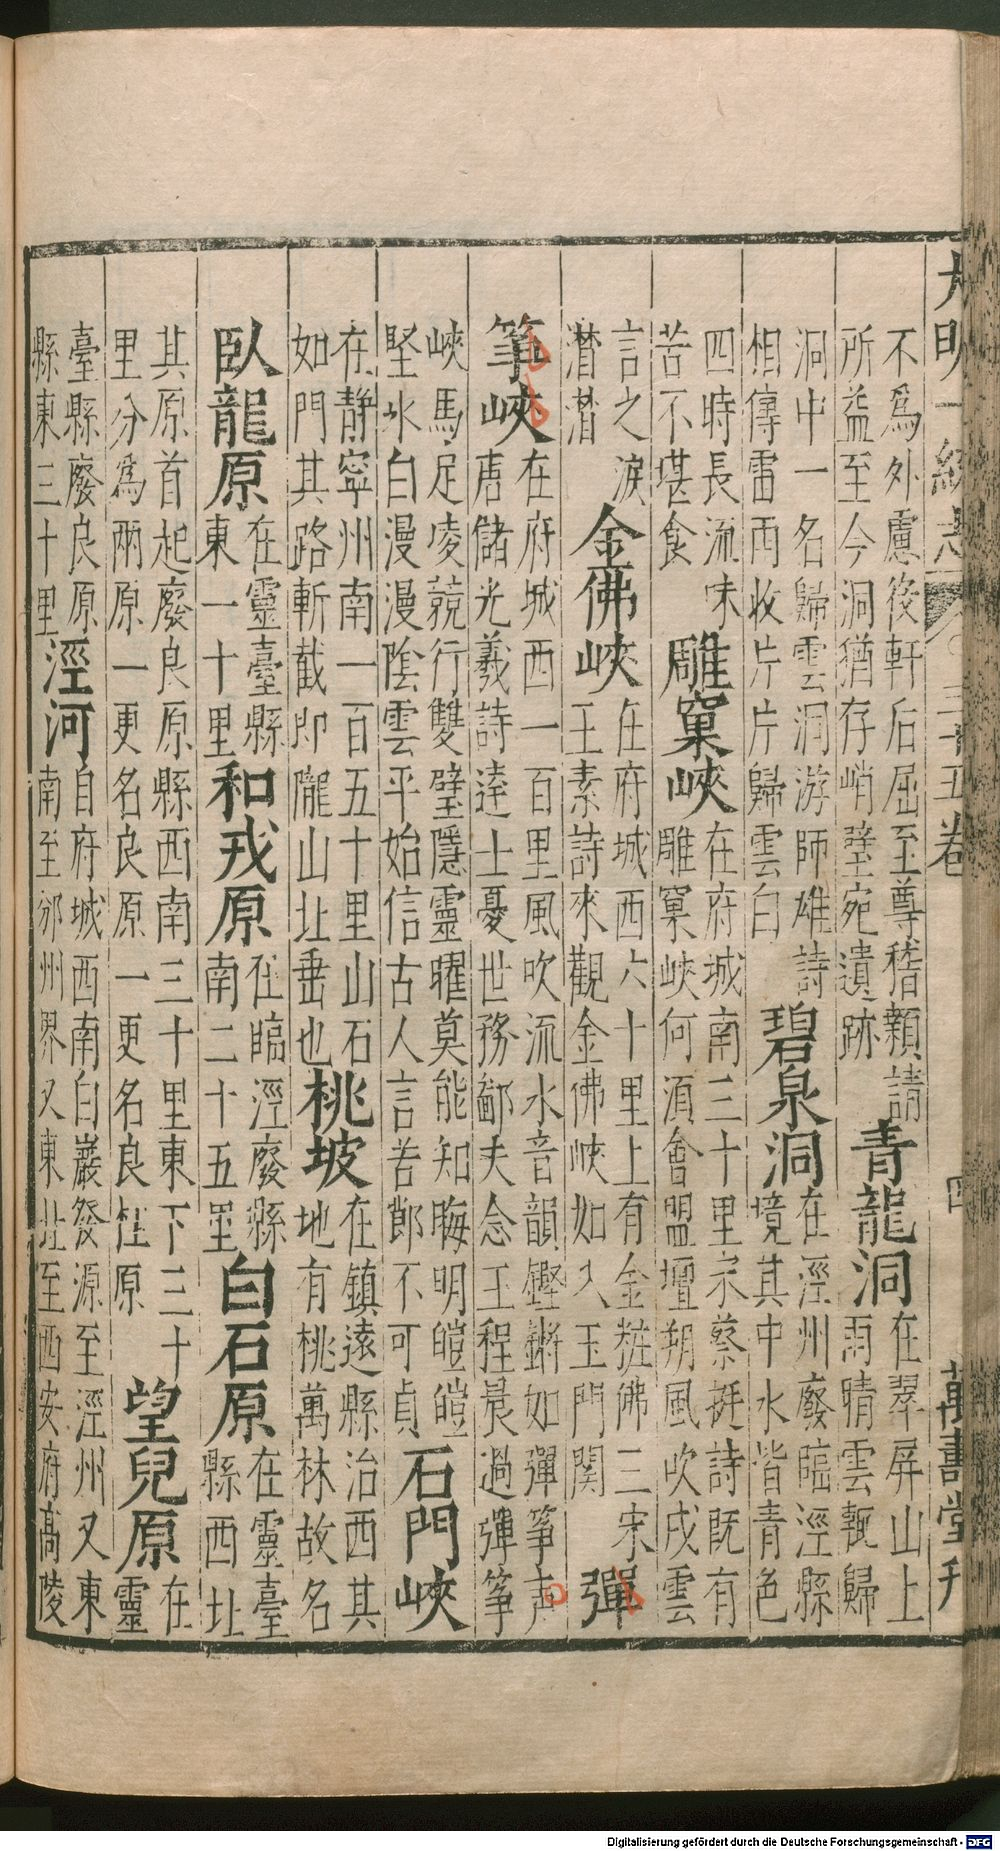 大明一統志 三十五卷 四 萬壽堂刊
不為外慮後軒后屈至尊稽顙請
所益至今洞猶存峭壁宛遺跡
青龍洞
在翠屏山上
雨晴雲輒歸
洞中一名歸雲洞游師雄詩
相傳雷雨收片片歸雲白
碧泉洞
在涇州廢臨涇縣
境其中水皆青色
四時長流味
苦不堪食
雕窠峽
在府城南三十里宋蔡挺詩既有
雕窠峽何須會盟壇朔風吹戍雲
言之淚
潸潸
金佛峽
在府城西六十里上有金粧佛三宋
王素詩來觀金佛峽如入玉門関
彈
筝峽
在府城西一百里風吹流水音韻鏗鏘如彈筝声
唐儲光羲詩達士憂世務鄙夫念王程晨過彈筝
峽馬足凌兢行雙璧隱靈曜莫能知晦明皚皚
堅氷白漫漫陰雲平始信古人言苦節不可貞
石門峽
在静寧州南一百五十里山石
如門其路斬截即隴山址垂也
桃坡
在鎮遠縣治西其
地有桃萬林故名
臥龍原
在靈臺縣
東一十里
和戎原
在臨涇廢縣
南二十五里
白石原
在靈臺
縣西北
其原首起廢良原縣西南三十里東下三十
里分為兩原一更名良原一更名良杜原
望兒原
在
靈
臺縣廢良原
縣東三十里
涇河
自府城西南白巖發源至涇州又東
南至邠州界又東北至西安府高陵
Digitalisierung gefördert durch die Deutsche Forschungsgemeinschaft - DFG